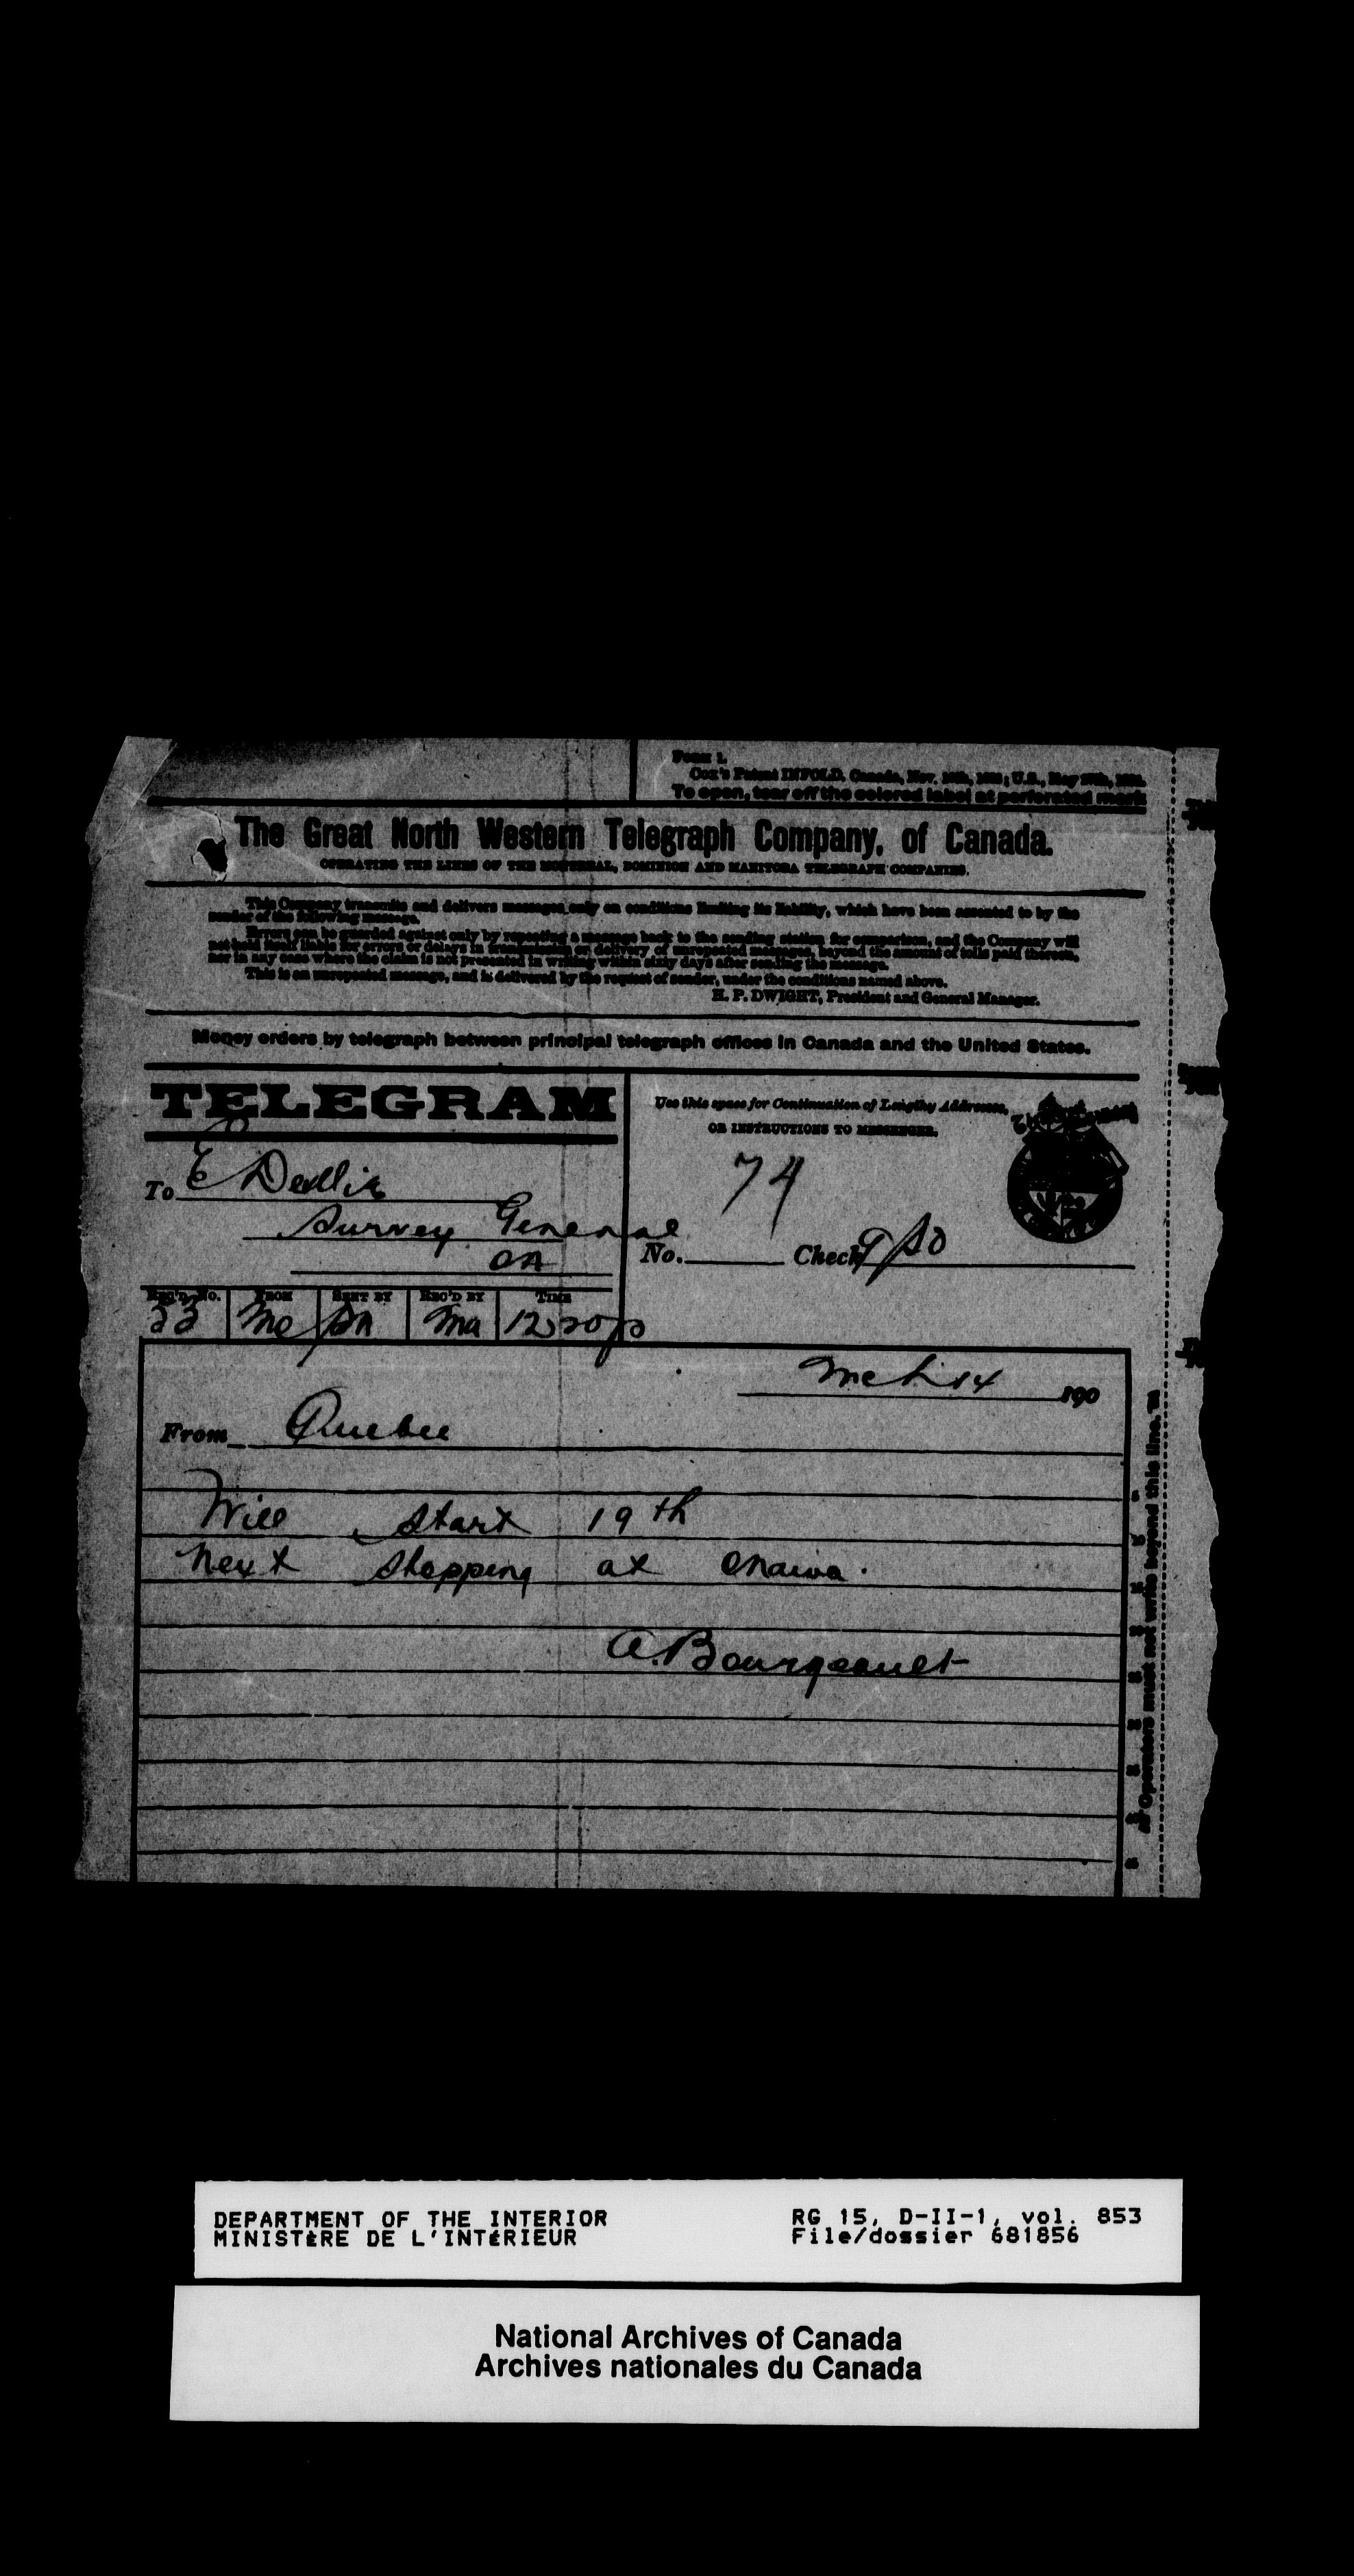 Form 1.
Cox's Patent INFOLD, Canada, Nov.
To open, tear off the colored label at perforated mark
The Great North Western Telegraph Company, of Canada.
OPERATING THE LINES OF THE MONTREAL, DOMINION AND MANITOBA TELEGRAPH COMPANIES.
This Company transmits and delivers messages only on conditions limiting its liability, which have been assented to by the
sender of the following message.
Errors can be guarded against only by repeating a message back to the sending station for comparison, and the Company will
not hold itself liable for errors or delays in transmission or delivery of unrepeated messages, beyond the amount of tolls paid thereon,
nor in any case where the claim is not presented in writing within sixty days after sending the message.
This is an unrepeated message, and is delivered by the request of sender, under the conditions named above.
H. P. DWIGHT, President and General Manager.
Money orders by telegraph between principal telegraph offices in Canada and the United States.
TELEGRAM
Use this space for Continuation of Lengthy Addresses,
OR INSTRUCTIONS TO MESSENGER.
74
To E Devlin
Survey General
No. Check
REC'D No. FROM SENT BY REC'D BY TIME
33 Ma
Mch 14 190
From Quebec
Will start 19th
Next stopping at
A. Bourgeault
Operators must not write beyond this line.
DEPARTMENT OF THE INTERIOR
MINISTÈRE DE L'INTÉRIEUR
RG 15, D-II-1, vol. 853
File/dossier 681856
National Archives of Canada
Archives nationales du Canada